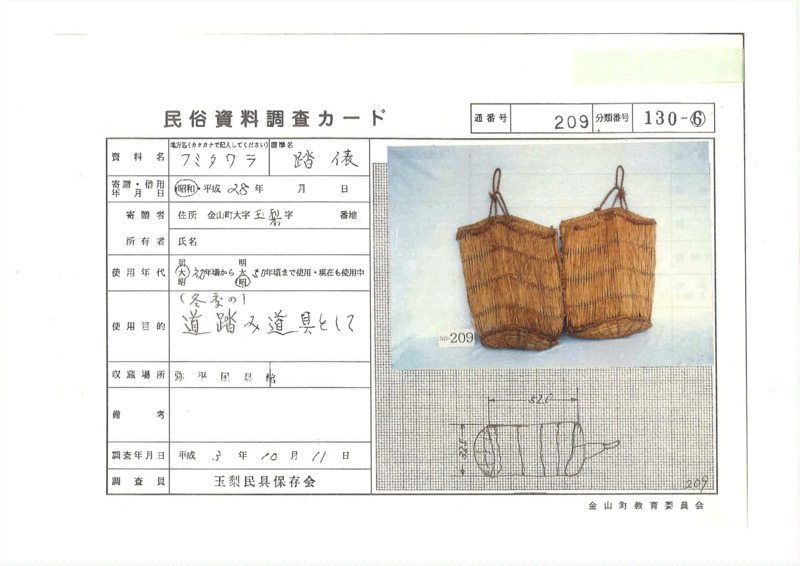 民俗資料調査カード
通番号 209 分類番号 130-⑥
資料名 地方名(カタカナで記入してください) フミタワラ 標準名 踏俵
寄贈・借用年月日 昭和・平成 28年 月 日
寄贈者 住所 金山町大字 玉梨 字 番地
所有者 氏名
使用年代 明大昭 年頃から 明大昭 50年頃まで使用・現在も使用中
使用目的 (冬季の)
道踏み道具として
収蔵場所 弥平民具館
備考
調査年月日 平成 3年 10月 11日
調査員 玉梨民具保存会
NO-209
52.0
209
金山町教育委員会